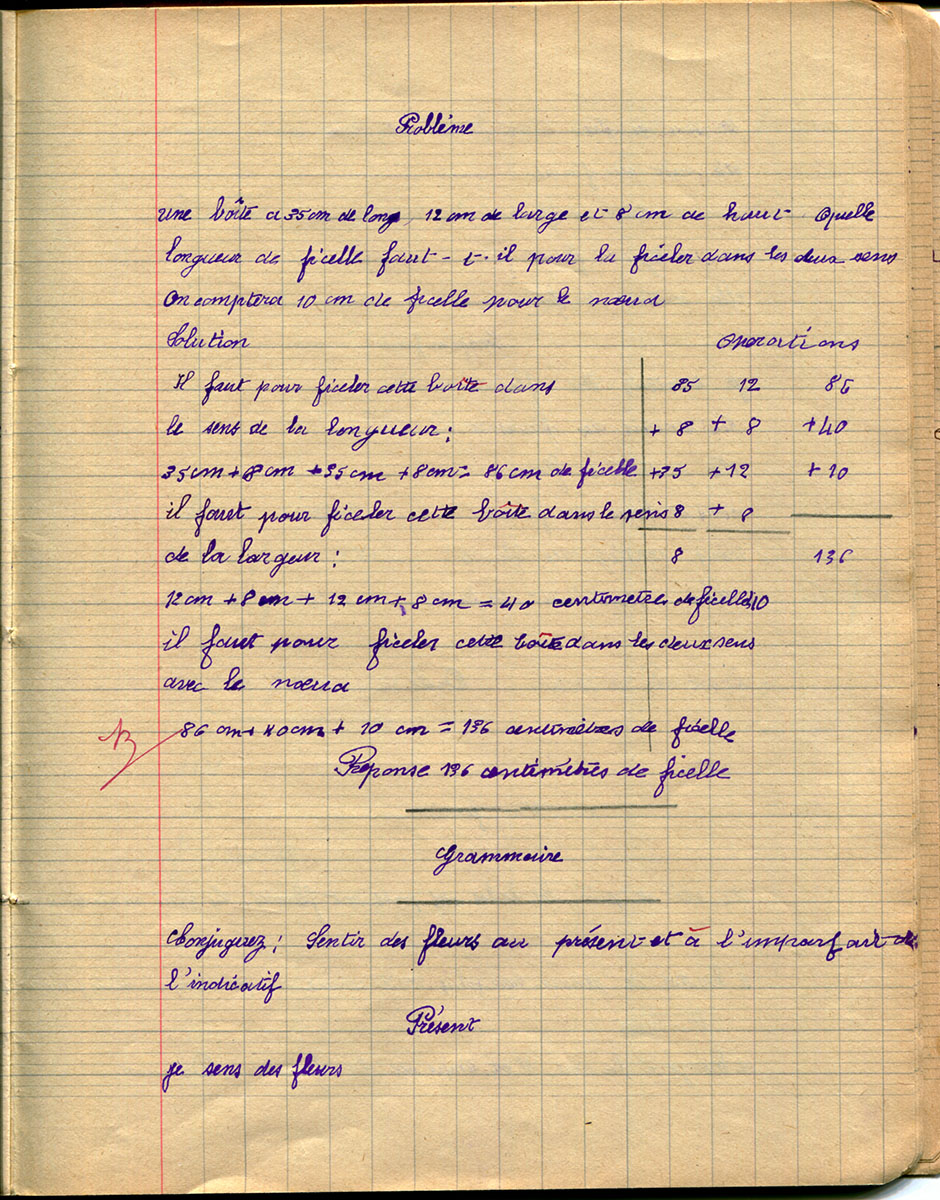 Problème
Une boîte a 35 cm de long, 12 cm de large et 8 cm de haut Quelle
longueur de ficelle faut-t-il pour la ficeler dans les deux sens
On comptera 10 cm de ficelle pour le nœud
Solution operations
Il faut pour ficeler cette boîte dans 35 12 86
le sens de la longueur: + 8 + 8 +40
35 cm + 8 cm + 35 cm + 8 cm = 86 cm de ficelle +35 +12 +10
il faut pour ficeler cette boîte dans le sens 8 + 8
de la largeur: 8 136
12 cm + 8 cm + 12 cm + 8 cm = 40 centimètres de ficelle
il faut pour ficeler cette boîte dans les deux sens
avec le nœud
86 cm + 40 cm + 10 cm = 136 centimètres de ficelle
Réponse 136 centimètres de ficelle
Grammaire
Conjuguez: Sentir des fleurs au présent et à l'imparfait de
l'indicatif
Présent
je sens des fleurs